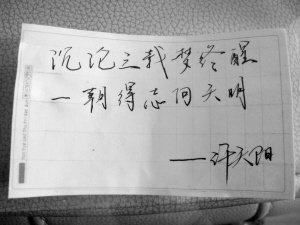 沉沦三载梦终醒
一朝得志问天明
——许天阳